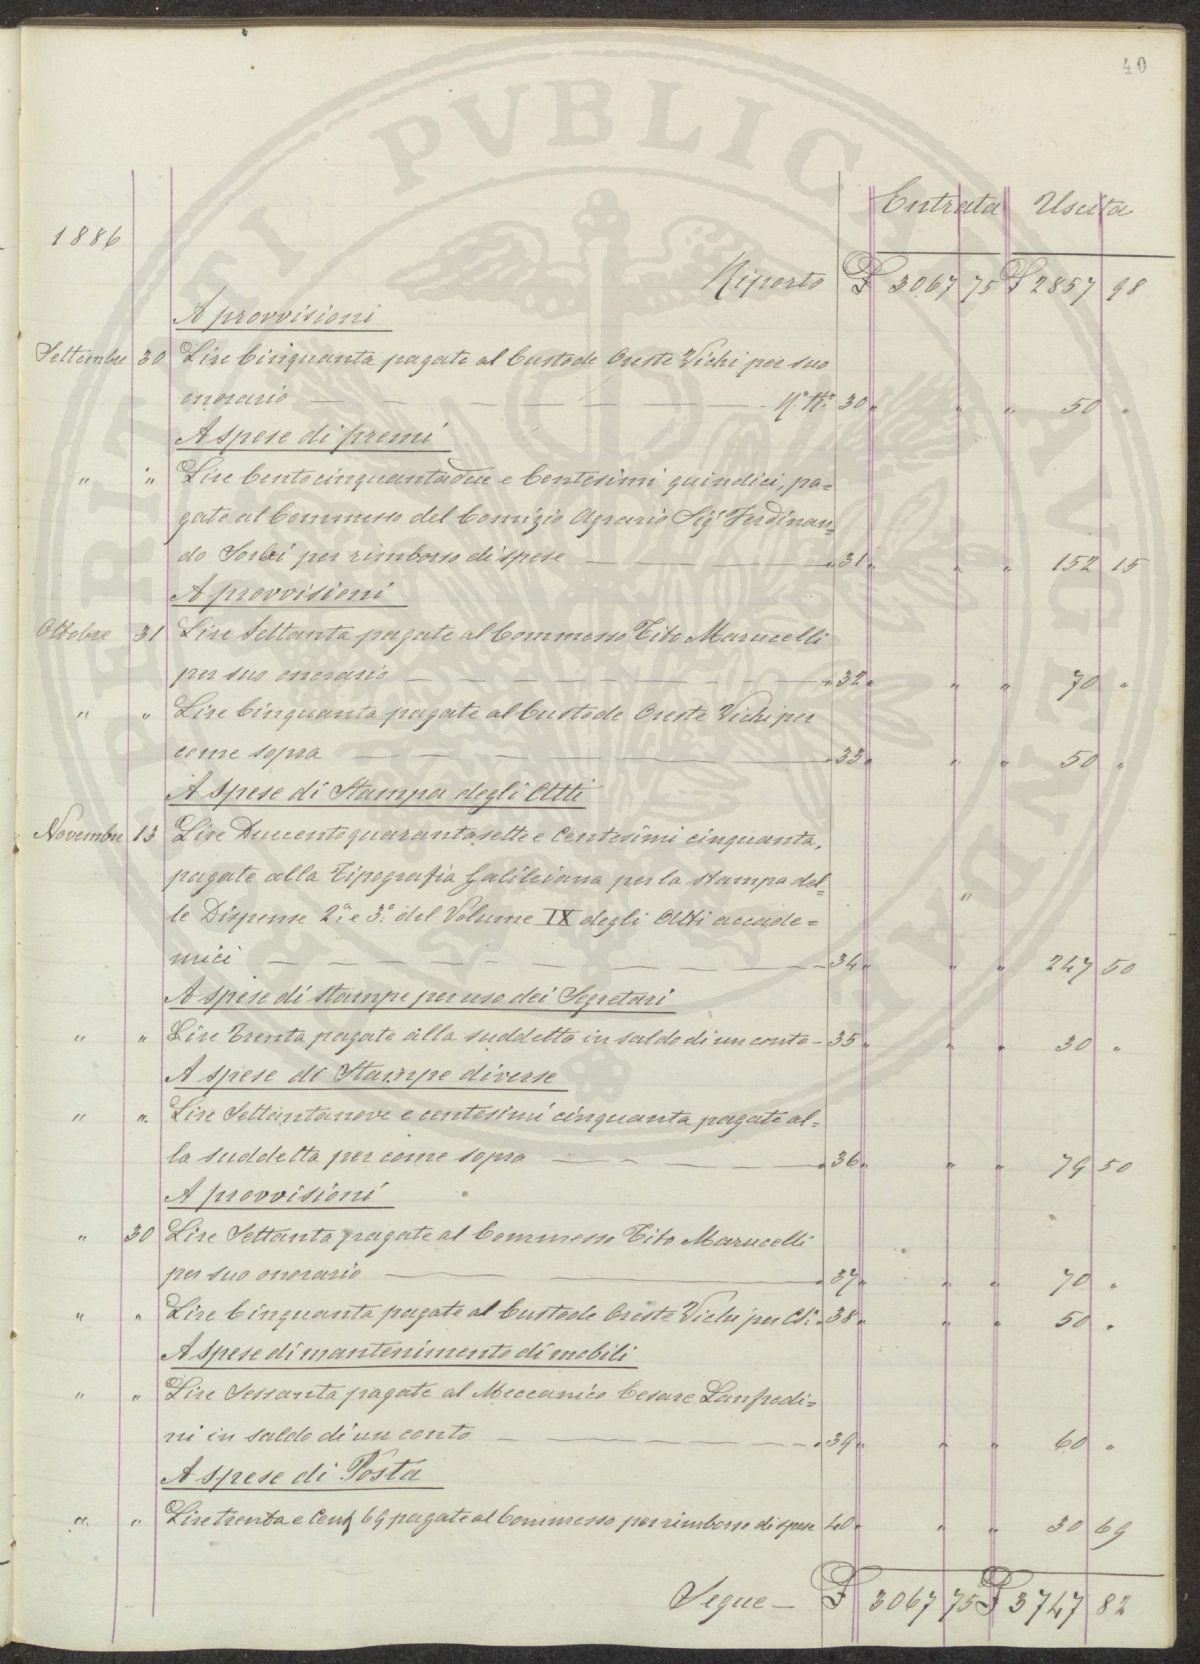 40
Entrata Uscita
1886
Riporto £ 3067 75 £ 2857 98
A provvisioni
Settembre 30 Lire Cinquanta pagate al Custode Oreste Vichi per suo
onorario — — — — N.° M.to 30 „ „ „ 50 „
A spese di premi
„ „ Lire Centocinquantadue e Centesimi quindici, pa=
gate al Commesso del Comizio Agrario Sig.r Ferdinan=
do Sorbi per rimborso di spese — — „ 31 „ „ „ 152 15
A provvisioni
Ottobre 31 Lire Settanta pagate al Commesso Tito Marucelli
per suo onorario — — — — „ 32 „ „ „ 70 „
„ „ Lire Cinquanta pagate al Custode Oreste Vichi per
come sopra — — — — „ 33 „ „ „ 50 „
A spese di Stampa degli Atti
Novembre 13 Lire Duecentoquarantasette e Centesimi cinquanta,
pagate alla Tipografia Galileiana per la stampa del=
le Dispense 2.a e 3.a del Volume IX degli Atti accade= „
mici — — — — — „ 34 „ „ „ 247 50
A spese di stampe per uso dei Segretari
„ „ Lire Trenta pagate alla suddetta in saldo di un conto — 35 „ „ „ 30 „
A spese di Stampe diverse
„ „ Lire Settantanove e centesimi cinquanta pagate al=
la suddetta per come sopra — — — „ 36 „ „ „ 79 50
A provvisioni
„ 30 Lire Settanta pagate al Commesso Tito Marucelli
per suo onorario — — „ 37 „ „ „ 70 „
„ „ Lire Cinquanta pagate al Custode Oreste Vichi per C.S.a „ 38 „ „ „ 50 „
A spese di mantenimento di mobili
„ „ Lire Sessanta pagate al Meccanico Cesare Lanfredi=
ni in saldo di un conto — — „ 39 „ „ „ 60 „
A spese di Posta
„ „ Lire trenta e Cent 69 pagate al Commesso per rimborso di spese 40 „ „ „ 30 69
Segue — £ 3067 75 £ 3747 82